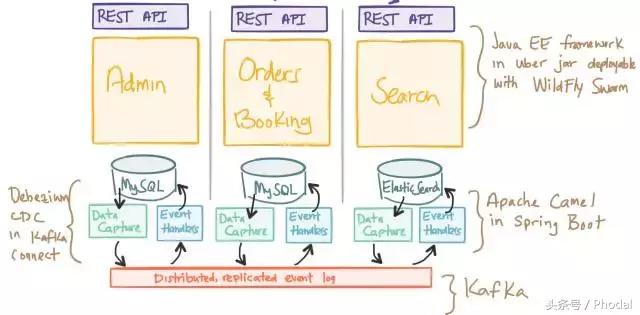 REST API
REST API
REST API
Admin
Orders
&
Booking
Search
Java EE framework
in uber jar deployable
with WildFly Swarm
MySQL
MySQL
ElasticSearch
Debezium
CDC
in Kafka
Connect
Data
Capture
Event
Handlers
Data
Capture
Event
Handlers
Data
Capture
Event
Handlers
Apache Camel
in Spring Boot
Distributed, replicated event log
Kafka
头条号 / Phodal